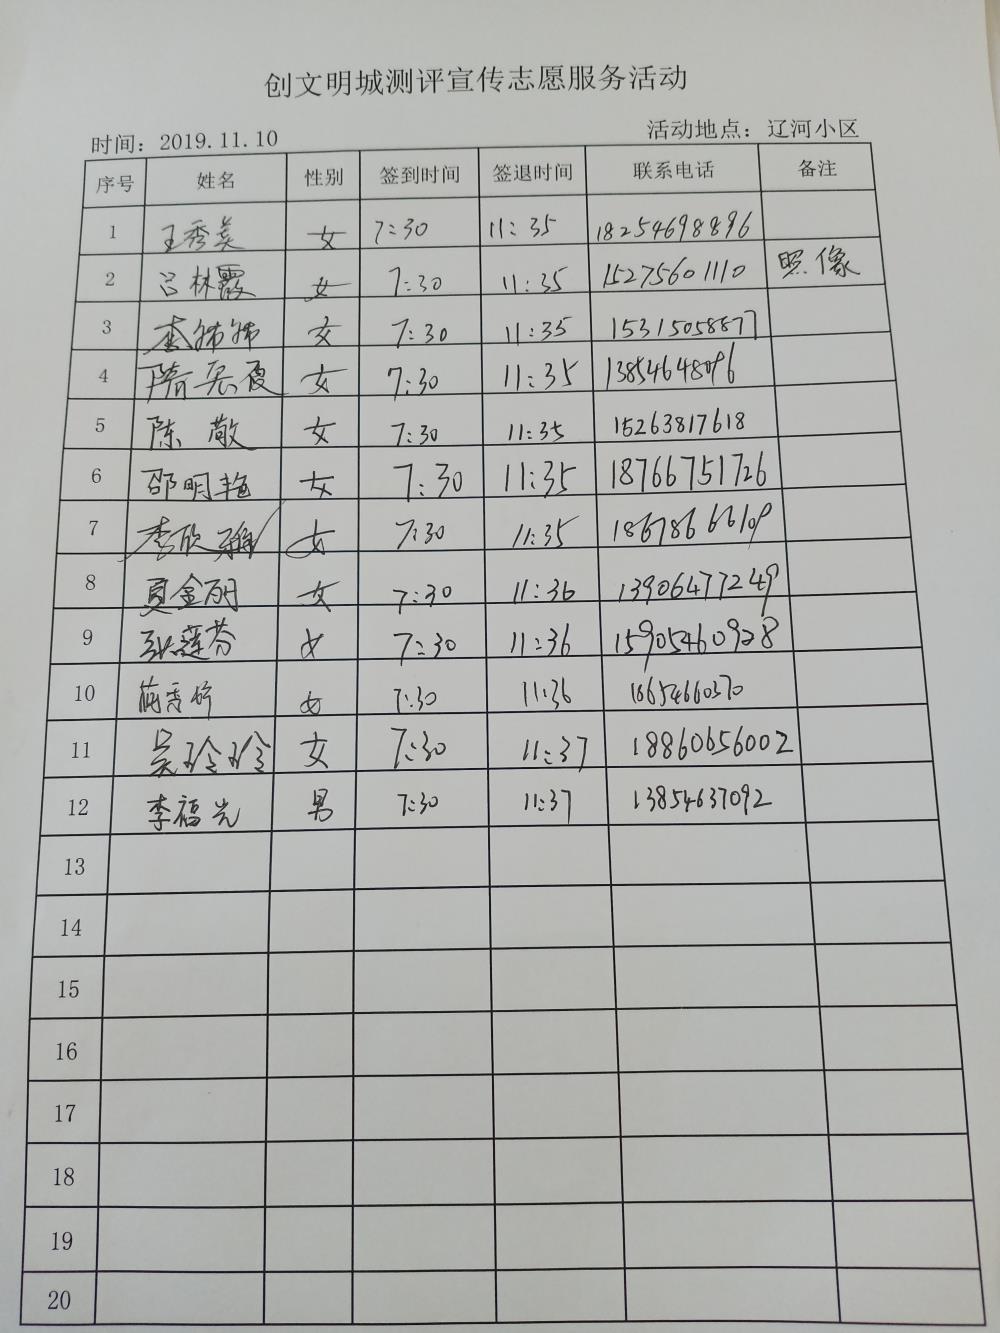 创文明城测评宣传志愿服务活动
时间：2019.11.10 活动地点：辽河小区
序号 姓名 性别 签到时间 签退时间 联系电话 备注
1 王秀美 女 7:30 11:35 18254698896
2 吕林霞 女 7:30 11:35 15275601110 照像
3 李姊姊 女 7:30 11:35 15315058877
4 隋 女 7:30 11:35 13854648096
5 陈敬 女 7:30 11:35 15263817618
6 邵明艳 女 7:30 11:35 18766751726
7 李欣 女 7:30 11:35 18678666109
8 夏金丽 女 7:30 11:36 13906477249
9 张莲芬 女 7:30 11:36 15905460928
10 女 7:30 11:36 18654660370
11 吴玲玲 女 7:30 11:37 18860656002
12 李福光 男 7:30 11:37 13854637092
13
14
15
16
17
18
19
20